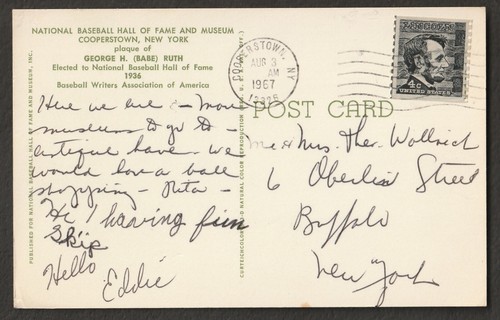 NATIONAL BASEBALL HALL OF FAME AND MUSEUM
COOPERSTOWN, NEW YORK
plaque of
GEORGE H. (BABE) RUTH
Elected to National Baseball Hall of Fame
1936
Baseball Writers Association of America
Here we are - More
museums to go to -
antique have - we
would love a ball
shopping - Rita -
Hi I having fun
Skip
Hello
Eddie
PUBLISHED FOR NATIONAL BASEBALL HALL OF FAME AND MUSEUM, INC.
NATURAL COLOR REPRODUCTION
COOPERSTOWN, NY
AUG 3
AM
1967
13326
4c
UNITED STATES
POST CARD
Mr & Mrs. Theo. Wollrich
6 Oberlin Street
Buffalo
New York